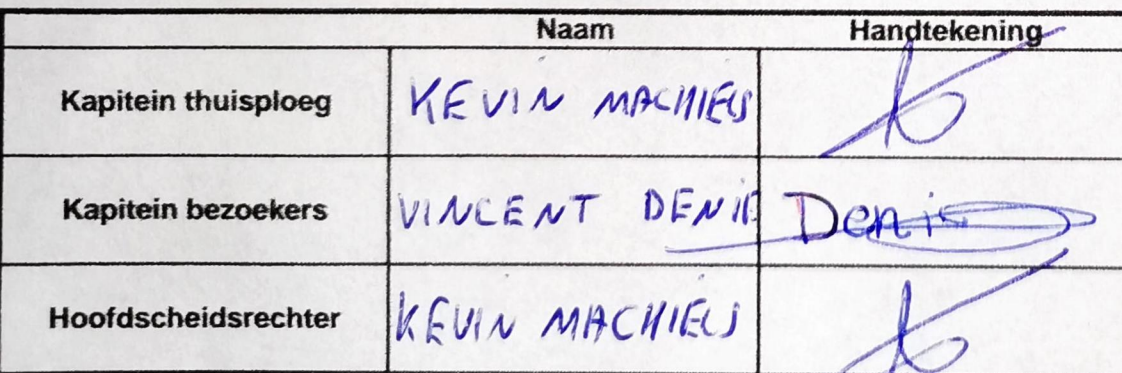 Naam Handtekening
Kapitein thuisploeg KEVIN MACHIELS
Kapitein bezoekers VINCENT DENIS Denis
Hoofdscheidsrechter KEVIN MACHIELS